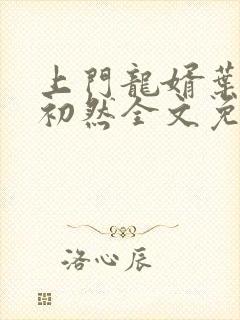 上門龍婿葉
初然全文免
洛心辰